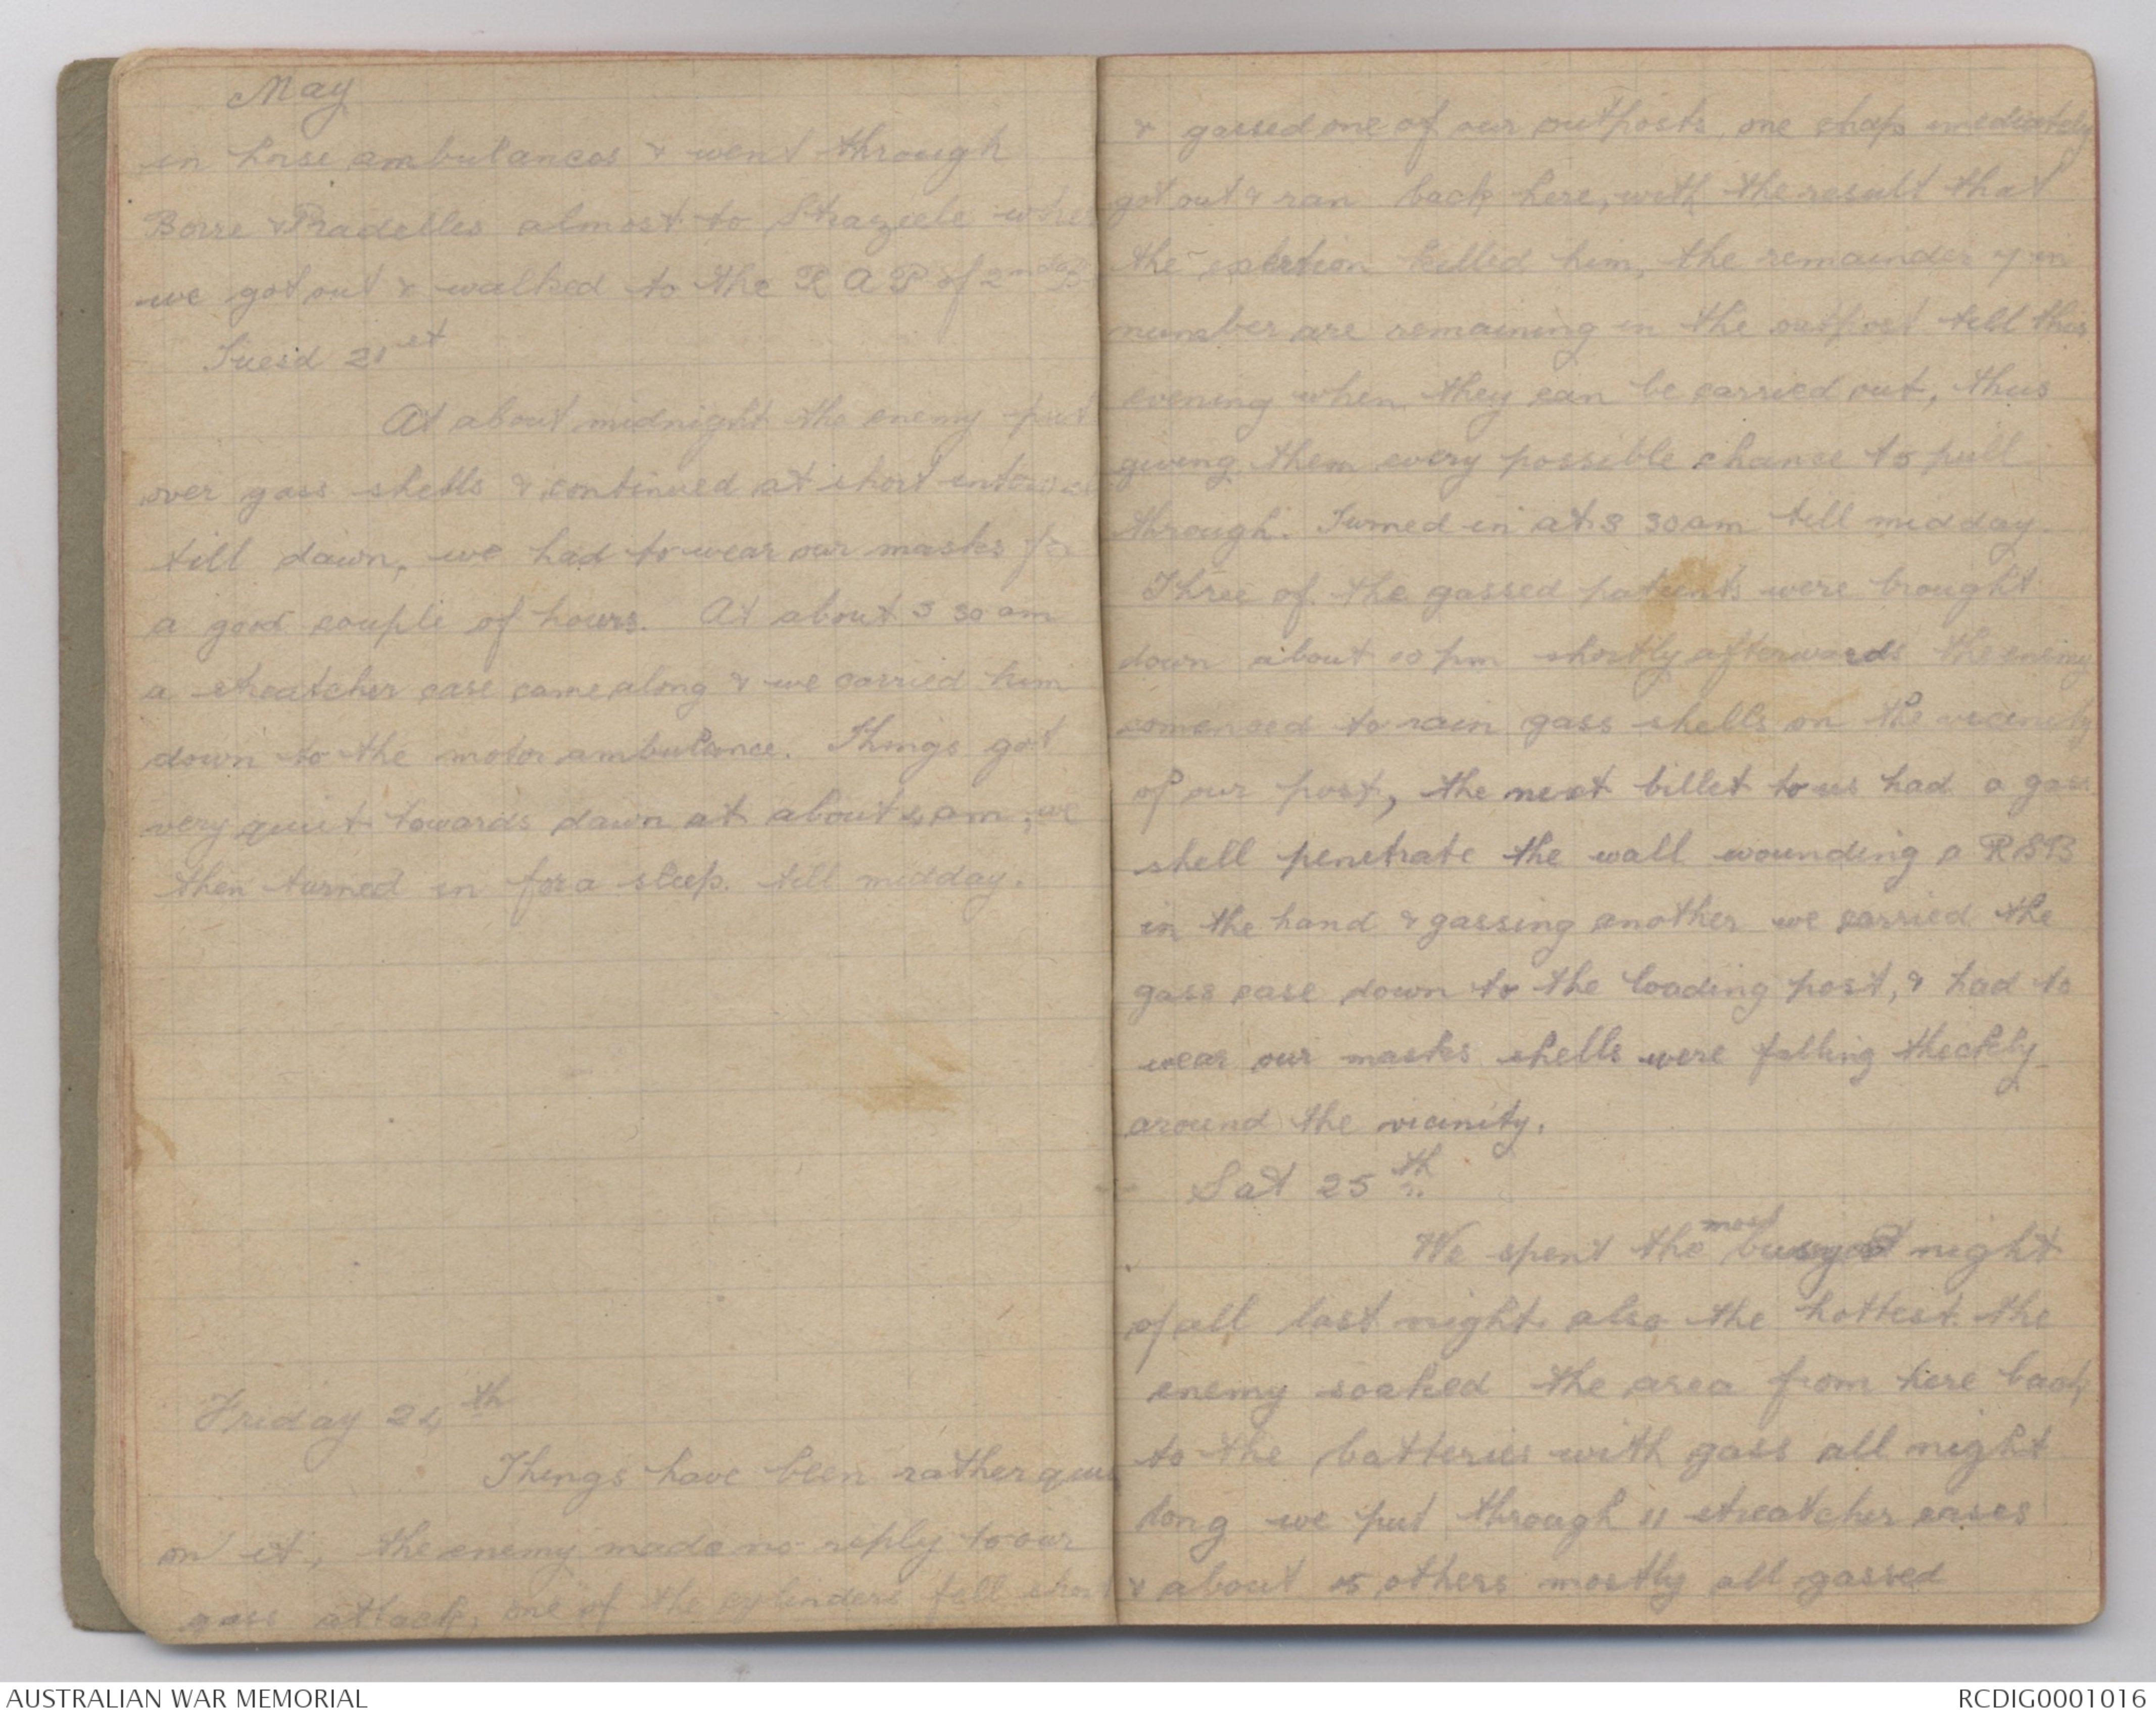 May
in horse ambulances & went through
Borre & Pradelles almost to Strazeele
we got out & walked to the R A P of 2nd
Tuesd 21st
At about midnight the enemy put
over gass shells & continued at short
till dawn, we had to wear our masks
a good couple of hours. At about 3 30 am
a streatcher case came along & we carried him
down to the motor ambulance. Things got
very quiet towards dawn at about 4 am, we
then turned in for a sleep. till midday.
Friday 24th
Things have been rather
on it, the enemy made no reply to our
gass attack, one of the cylinders fell short
& gassed one of our outposts, one chap imediately
got out & ran back here, with the result that
the exertion killed him, the remainder 7 in
number are remaining in the outpost till this
evening when they can be carried out, thus
giving them every possible chance to pull
through. Turned in at 8 30 am till midday
Three of the gassed patients were brought
down about 10 pm shortly afterwards the enemy
comenced to rain gass shells on the vicinity
of our post, the next billet to us had a gass
shell penetrate the wall wounding a RSB
in the hand & gassing another we carried the
gass case down to the loading post, & had to
wear our masks shells were falling thickly
around the vicinity.
Sat 25th
We spent the most busyest night
of all last night. also the hottest the
enemy soaked the area from here back
to the batteries with gass all night
long we put through 11 streatcher cases
& about others mostly all gassed
AUSTRALIAN WAR MEMORIAL
RCDIG0001016